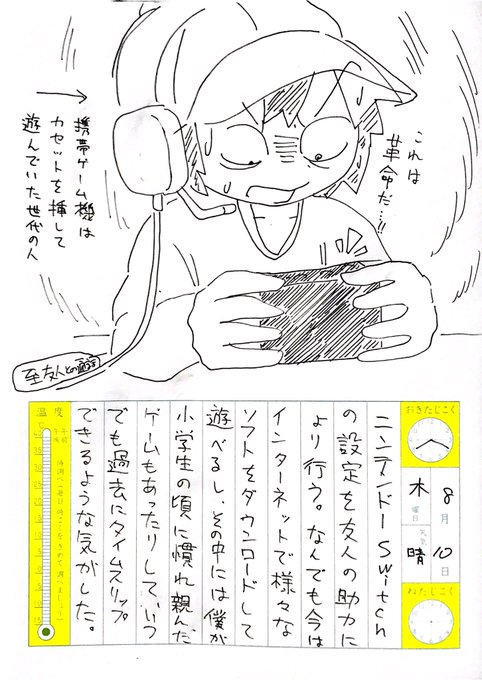 これは
革命だ…!!
携帯ゲーム機は
カセットを挿して
遊んでいた世代の人
おきたじこく
8月10日
木曜日
天気 晴
ねたじこく
ニンテンドーSwitch
の設定を友人の助力に
より行う。なんでも今は
インターネットで様々な
ソフトをダウンロードして
遊べるし、その中には僕が
小学生の頃に慣れ親んだ
ゲームもあったりしていつ
でも過去にタイムスリップ
できるような気がした。
温度
℃
午前
午後
40
35
30
25
20
15
10
5
0
5
10
15